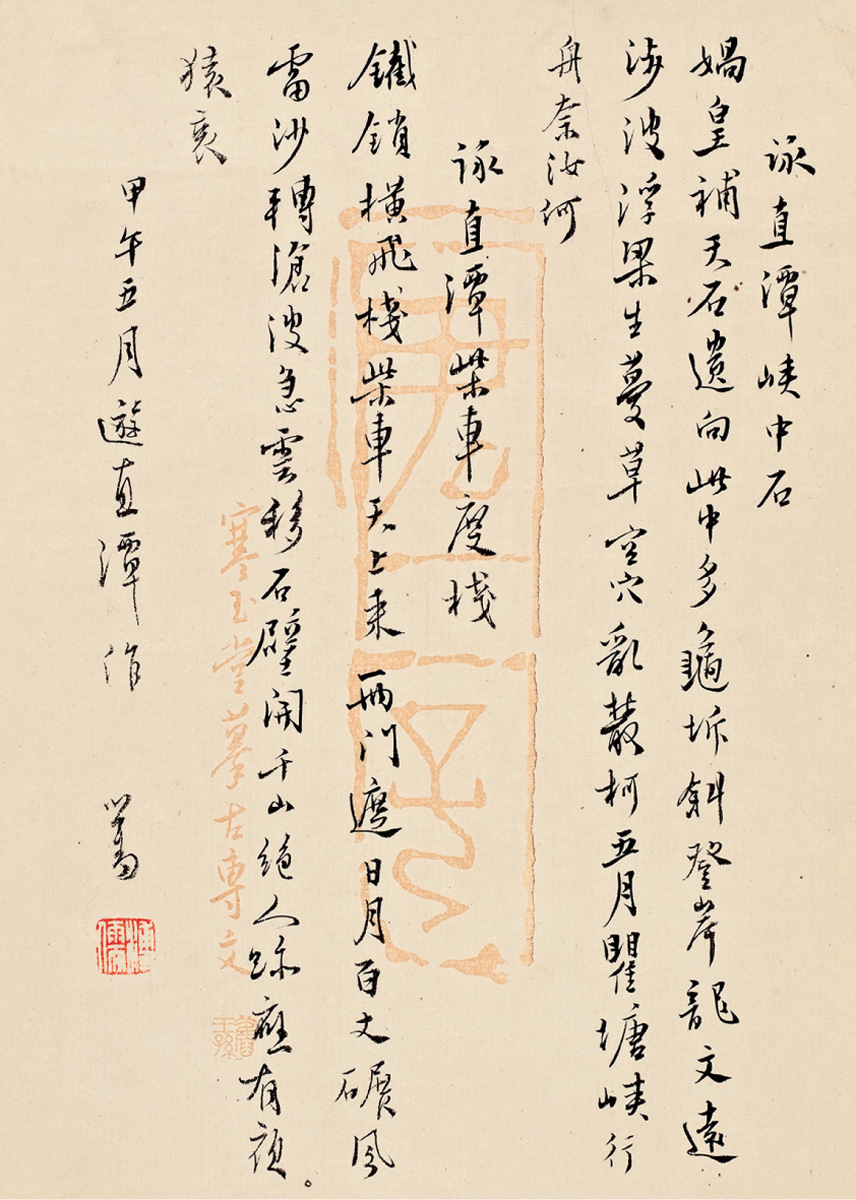 詠直潭峽中石
媧皇補天石遺向此中多龜坼斜登岸龍文遠
涉波浮梁生蔓草空穴亂叢柯五月瞿塘峽行
舟奈汝何
詠直潭柴車度棧
鐵鎖橫飛棧柴車天上來兩門遮日月百丈礙風
雷沙轉滄波急雲移石壁開千山絕人跡應有夜
猿哀
甲午五月遊直潭作
溥儒
寒玉堂摹古專文
舊王孫